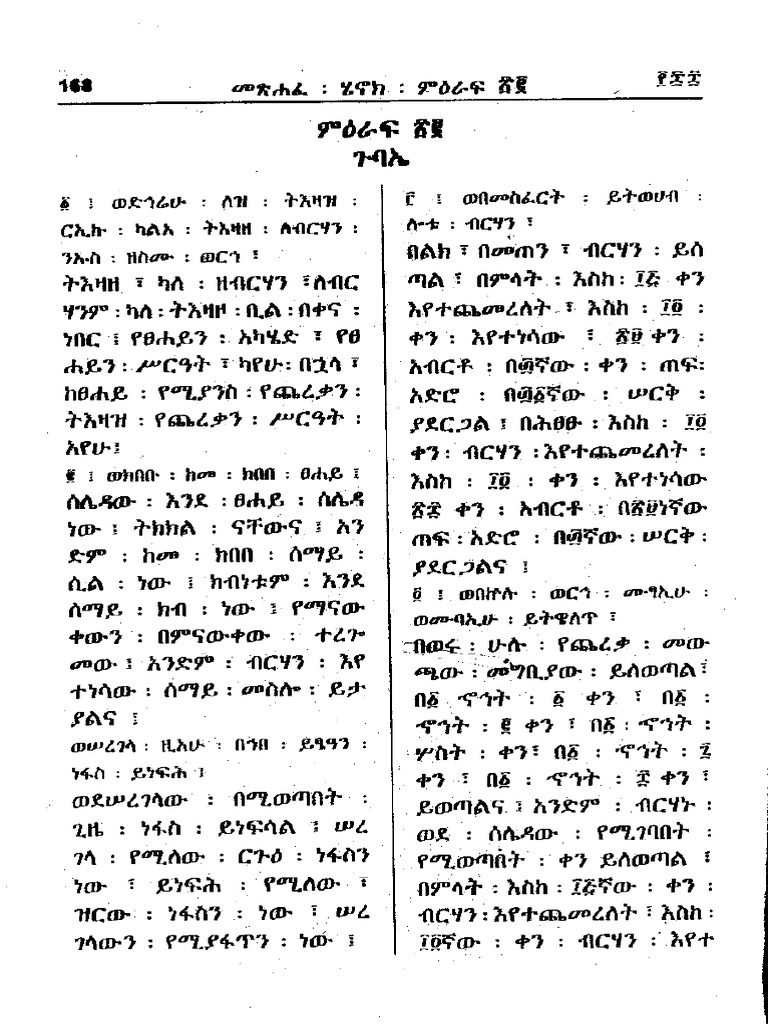 168 መጽሐፈ : ሄኖክ : ምዕራፍ ፳፪ ፻፷፷
ምዕራፍ ፳፪
ጉባኤ
፩ ፤ ወድኅሬሁ : ለዝ : ትእዛዝ :
ርኢኩ : ካልአ : ትእዛዘ : ለብርሃን :
ንኡስ : ዘስሙ : ወርኅ ፤
ትእዛዘ ፣ ካለ : ዘብርሃን ፣ለብር
ሃንም : ካለ : ትእዛዞ : ቢል : በቀና :
ነበር ፤ የፀሐይን : አካሄድ ፣ የፀ
ሐይን : ሥርዓት ፣ ካየሁ: በኋላ ፣
ከፀሐይ : የሚያንስ : የጨረቃን :
ትእዛዝ : የጨረቃን : ሥርዓት :
አየሁ፤
፪ ፤ ወክበቡ : ከመ : ክበበ : ፀሐይ ፤
ሰሌዳው : እንደ : ፀሐይ : ሰሌዳ
ነው ፤ ትክክል : ናቸውና ፤ አን
ድም : ከመ : ክበበ : ሰማይ :
ሲል : ነው ፤ ክብነቱም : እንደ
ሰማይ : ክብ : ነው ፤ የማናው
ቀውን : በምናውቀው : ተረጐ
መው ፤ አንድም : ብርሃን : እየ
ተነሳው : ሰማይ : መስሎ : ይታ
ያልና ፤
ወሠረገላ : ዚአሁ : በኀበ : ይፄዓን :
ነፋስ : ይነፍሕ ፤
ወደሠረገላው : በሚወጣበት :
ጊዜ : ነፋስ : ይነፍሳል ፤ ሠረ
ገላ : የሚለው : ርጉዕ : ነፋስን
ነው ፣ ይነፍሕ : የሚለው ፣
ዝርው : ነፋስን : ነው ፣ ሠረ
ገላውን : የሚያፋጥን : ነው ፤
፫ ፤ ወበመስፈርት : ይትወሀብ :
ሎቱ : ብርሃን ፣
በልክ ፣ በመጠን ፣ ብርሃን : ይሰ
ጣል ፣ በምላት : እስከ : ፲፭ ቀን
እየተጨመረለት ፣ እስከ : ፲፬ :
ቀን : እየተነሳው ፣ ፳፱ ቀን :
አብርቶ : በ፴ኛው : ቀን : ጠፍ:
አድሮ : በ፴፩ኛው : ሠርቅ :
ያደርጋል ፤ በሕፀፁ : እስከ : ፲፬
ቀን: ብርሃን : እየተጨመረለት :
እስከ : ፲፬ : ቀን : እየተነሳው
፳፰ ቀን : አብርቶ : በ፳፱ነኛው
ጠፍ : አድሮ : በ፴ኛው : ሠርቅ :
ያደርጋልና ፤
፬ ፤ ወበኵሉ : ወርኅ : ሙፃኢሁ :
ወሙባኢሁ : ይትዌለጥ ፣
በወሩ : ሁሉ : የጨረቃ : መው
ጫው : መግቢያው : ይለወጣል፣
በ፩ ኆኅት : ፩ ቀን ፣ በ፩ :
ኆኅት : ፪ ቀን ፣ በ፩ : ኆኅት :
ሦስት : ቀን፣ በ፩ : ኆኅት : ፯
ቀን ፣ በ፩ : ኆኅት : ፰ ቀን ፣
ይወጣልና ፤ አንድም : ብርሃኑ :
ወደ : ሰሌዳው : የሚገባበት :
የሚወጣበት : ቀን ይለወጣል ፣
በምላት : እስከ : ፲፭ኛው : ቀን :
ብርሃን : እየተጨመረለት ፣ እስከ :
፲፬ኛው : ቀን : ብርሃን : እየተ